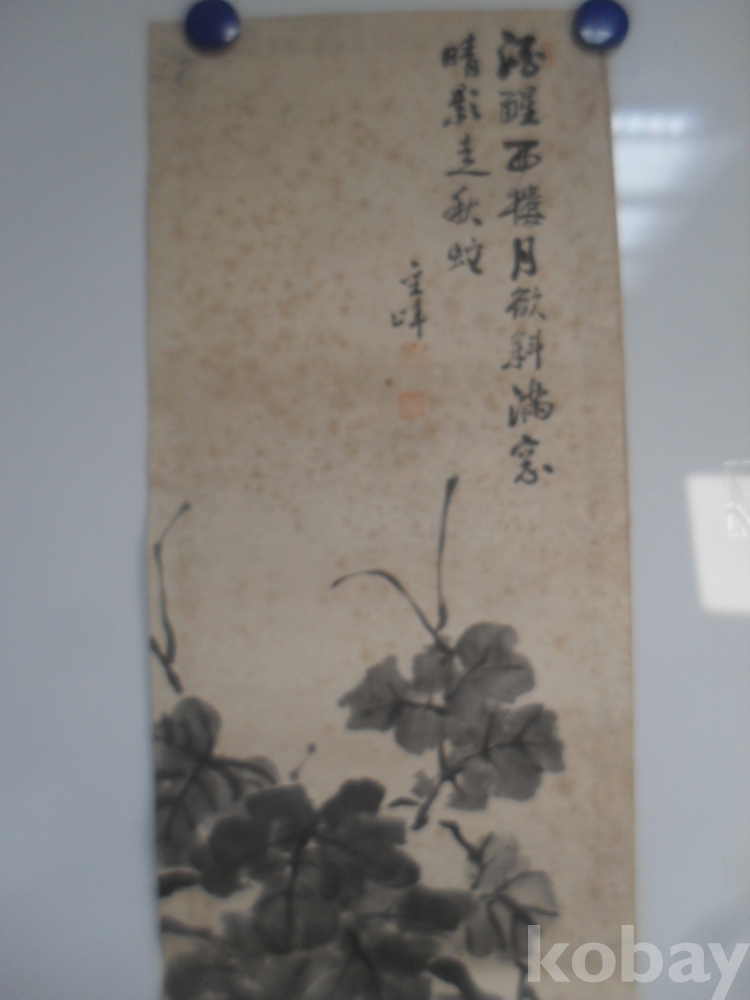 酒醒西樓月欲斜滿窓
晴影走秋蛇
峰
kobay